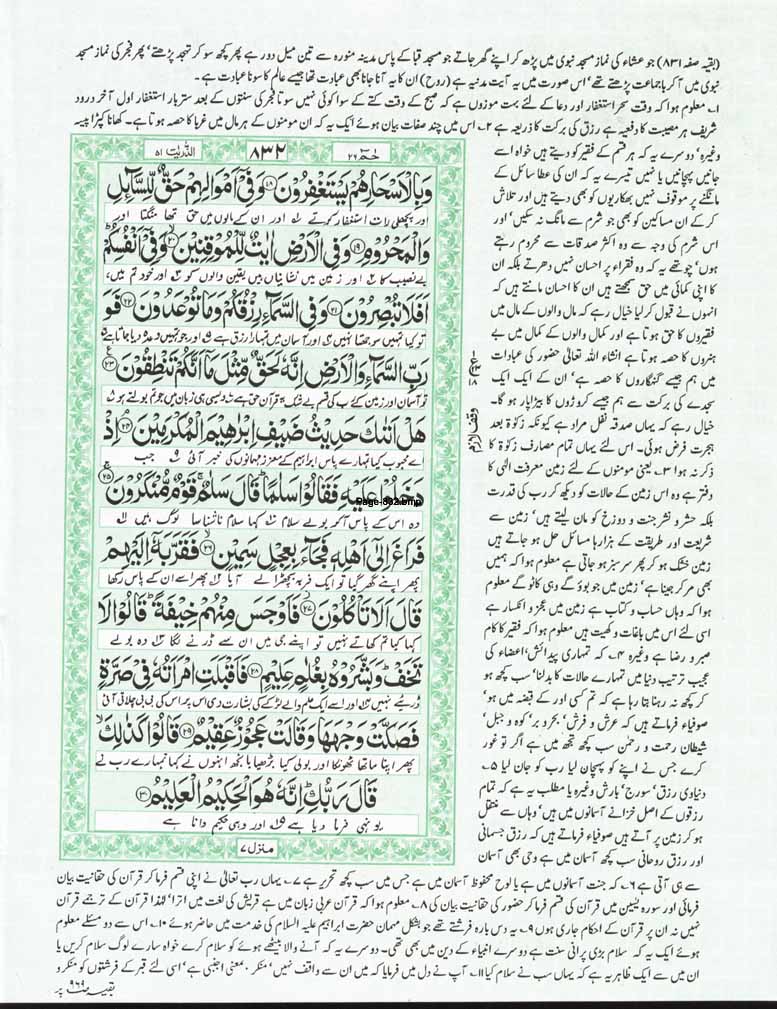 (بقیہ صفحہ ۸۳۱) جو عشاء کی نماز مسجد نبوی میں پڑھ کر اپنے گھر جاتے جو مسجد قبا کے پاس مدینہ منورہ سے تین میل دور ہے پھر کچھ سو کر تہجد پڑھتے' پھر فجر کی نماز مسجد
نبوی میں آ کر باجماعت پڑھتے تھے' اس صورت میں یہ آیت مدنیہ ہے (روح) ان کا یہ آنا جانا بھی عبادت تھا جیسے عالم کا سونا عبادت ہے۔
۱۔ معلوم ہوا کہ وقت سحر استغفار اور دعا کے لئے بہت موزوں ہے کہ صبح کے وقت کتے کے سوا کوئی نہیں سوتا فجر کی سنتوں کے بعد ستر بار استغفار اول آخر درود
شریف ہر مصیبت کا دفعیہ ہے رزق کی برکت کا ذریعہ ہے ۲۔ اس میں چند صفات بیان ہوئے ایک یہ کہ ان مومنوں کے ہر مال میں غربا کا حصہ ہوتا ہے۔ کھانا کپڑا پیسہ
حٰمٓ ۲۶
۸۳۲
الذّٰریٰت ۵۱
وَبِالْاَسْحَارِهُمْ يَسْتَغْفِرُوْنَ ۝۱۸ وَفِيْٓ اَمْوَالِهِمْ حَقٌّ لِّلسَّآئِلِ
اور پچھلی رات استغفار کرتے اور ان کے مالوں میں حق تھا منگتا اور
وَالْمَحْرُوْمِ ۝۱۹ وَفِي الْاَرْضِ اٰيٰتٌ لِّلْمُوْقِنِيْنَ ۝۲۰ وَفِيْٓ اَنْفُسِكُمْ ؕ
بے نصیب کا اور زمین میں نشانیاں ہیں یقین والوں کو اور خود تم میں،
اَفَلَا تُبْصِرُوْنَ ۝۲۱ وَفِي السَّمَآءِ رِزْقُكُمْ وَمَا تُوْعَدُوْنَ ۝۲۲ فَوَ
تو کیا تمہیں سوجھتا نہیں اور آسمان میں تمہارا رزق ہے اور جو تمہیں وعدہ دیا جاتا ہے
رَبِّ السَّمَآءِ وَالْاَرْضِ اِنَّهٗ لَحَقٌّ مِّثْلَ مَآ اَنَّكُمْ تَنْطِقُوْنَ ۝۲۳
تو آسمان اور زمین کے رب کی قسم بے شک یہ قرآن حق ہے ویسی ہی زبان میں جو تم بولتے ہو
هَلْ اَتٰىكَ حَدِيْثُ ضَيْفِ اِبْرٰهِيْمَ الْمُكْرَمِيْنَ ۝۲۴ اِذْ
اے محبوب کیا تمہارے پاس ابراہیم کے معزز مہمانوں کی خبر آئی جب
دَخَلُوْا عَلَيْهِ فَقَالُوْا سَلٰمًا ؕ قَالَ سَلٰمٌ ۚ قَوْمٌ مُّنْكَرُوْنَ ۝۲۵
Page-832.bmp
وہ اس کے پاس آکر بولے سلام کہا سلام ناشناسا لوگ ہیں
فَرَاغَ اِلٰٓى اَهْلِهٖ فَجَآءَ بِعِجْلٍ سَمِيْنٍ ۝۲۶ فَقَرَّبَهٗٓ اِلَيْهِمْ
پھر اپنے گھر گیا تو ایک فربہ بچھڑا لے آیا پھر اسے ان کے پاس رکھا
قَالَ اَلَا تَاْكُلُوْنَ ۝۲۷ فَاَوْجَسَ مِنْهُمْ خِيْفَةً ؕ قَالُوْا لَا
کہا کیا تم کھاتے نہیں تو اپنے جی میں ان سے ڈرنے لگا وہ بولے
تَخَفْ ؕ وَبَشَّرُوْهُ بِغُلٰمٍ عَلِيْمٍ ۝۲۸ فَاَقْبَلَتِ امْرَاَتُهٗ فِيْ صَرَّةٍ
ڈریے نہیں اور اسے ایک علم والے لڑکے کی بشارت دی اس پر اس کی بی بی چلاتی آئی
فَصَكَّتْ وَجْهَهَا وَقَالَتْ عَجُوْزٌ عَقِيْمٌ ۝۲۹ قَالُوْا كَذٰلِكِ ۙ
پھر اپنا ماتھا ٹھونکا اور بولی کیا بڑھیا بانجھ انہوں نے کہا تمہارے رب نے
قَالَ رَبُّكِ ؕ اِنَّهٗ هُوَ الْحَكِيْمُ الْعَلِيْمُ ۝۳۰
یونہی فرما دیا ہے اور وہی حکیم دانا ہے
منزل ۷
وقف لازم
وغیرہ' دوسرے یہ کہ ہر قسم کے فقیر کو دیتے ہیں خواہ اسے
جانیں پہچانیں یا نہیں تیسرے یہ کہ ان کی عطا سائل کے
مانگنے پر موقوف نہیں بھکاریوں کو بھی دیتے ہیں اور تلاش
کر کے ان مساکین کو بھی جو شرم سے مانگ نہ سکیں' اور
اس شرم کی وجہ سے وہ اکثر صدقات سے محروم رہتے
ہوں' چوتھے یہ کہ وہ فقراء پر احسان نہیں دھرتے بلکہ ان
کا اپنی کمائی میں حق سمجھتے ہیں ان کا احسان مانتے ہیں کہ
انہوں نے قبول کر لیا خیال رہے کہ مال والوں کے مال میں
فقیروں کا حق ہوتا ہے اور کمال والوں کے کمال میں بے
ہنروں کا حصہ ہوتا ہے انشاء اللہ تعالیٰ حضور کی عبادات
میں ہم جیسے گنہگاروں کا حصہ ہے' ان کے ایک ایک
سجدے کی برکت سے ہم جیسے کروڑوں کا بیڑا پار ہو گا۔
خیال رہے کہ یہاں صدقہ نفل مراد ہے کیونکہ زکوٰۃ بعد
ہجرت فرض ہوئی۔ اس لئے یہاں تمام مصارف زکوٰۃ کا
ذکر نہ ہوا ۳۔ یعنی مومنوں کے لئے زمین معرفت الٰہی کا
دفتر ہے وہ اس زمین کے حالات کو دیکھ کر رب کی قدرت
بلکہ حشر و نشر جنت و دوزخ کو مان لیتے ہیں' زمین سے
شریعت اور طریقت کے ہزارہا مسائل حل ہو جاتے ہیں
زمین خشک ہو کر پھر سرسبز ہو جاتی ہے معلوم ہوا کہ ہمیں
بھی مر کر جینا ہے' زمین میں جو بوؤ گے وہی کاٹو گے معلوم
ہوا کہ وہاں حساب و کتاب ہے زمین میں عجز و انکسار ہے
اسی لئے اس میں باغات و کھیت ہیں معلوم ہوا کہ فقیر کا کام
صبر و رضا ہے وغیرہ ۴۔ کہ تمہاری پیدائش' اعضاء کی
عجیب ترتیب دنیا میں تمہارے حالات کا بدلنا' سب کچھ ہو
کر کچھ نہ رہنا بتا رہا ہے کہ تم کسی اور کے قبضہ میں ہو'
صوفیاء فرماتے ہیں کہ عرش و فرش' بحر و بر' کوہ و جبل'
شیطان رحمت و رحمٰن سب کچھ تجھ میں ہے اگر تو غور
کرے جس نے اپنے کو پہچان لیا رب کو جان لیا ۵۔
دنیاوی رزق' سورج' بارش وغیرہ یا مطلب یہ ہے کہ تمام
رزقوں کے اصل خزانے آسمانوں میں ہیں' وہاں سے منتقل
ہو کر زمین پر آتے ہیں صوفیاء فرماتے ہیں کہ رزق جسمانی
اور رزق روحانی سب کچھ آسمان میں ہے وحی بھی آسمان
سے ہی آتی ہے ۶۔ کہ جنت آسمانوں میں ہے یا لوح محفوظ آسمان میں ہے جس میں سب کچھ تحریر ہے ۷۔ یہاں رب تعالیٰ نے اپنی قسم فرما کر قرآن کی حقانیت بیان
فرمائی اور سورہ یٰسین میں قرآن کی قسم فرما کر حضور کی حقانیت بیان کی ۸۔ معلوم ہوا کہ قرآن عربی زبان میں ہے قریش کی لغت میں اترا' لہٰذا قرآن کے ترجمے قرآن
نہیں نہ ان پر قرآن کے احکام جاری ہوں ۹۔ یہ دس بارہ فرشتے تھے جو بشکل مہمان حضرت ابراہیم علیہ السلام کی خدمت میں حاضر ہوئے ۱۰۔ اس سے دو مسئلے معلوم
ہوئے ایک یہ کہ سلام بڑی پرانی سنت ہے دوسرے انبیاء کے دین میں بھی تھی۔ دوسرے یہ کہ آنے والا بیٹھے ہوئے کو سلام کرے خواہ سارے لوگ سلام کریں یا
ان میں سے ایک ظاہر یہ ہے کہ یہاں سب نے سلام کیا ۱۱۔ آپ نے دل میں فرمایا کہ میں ان سے واقف نہیں' منکر بمعنی اجنبی ہے' اسی لئے قبر کے فرشتوں کو منکر و
بقیہ صفحہ ۹۶۹ پر